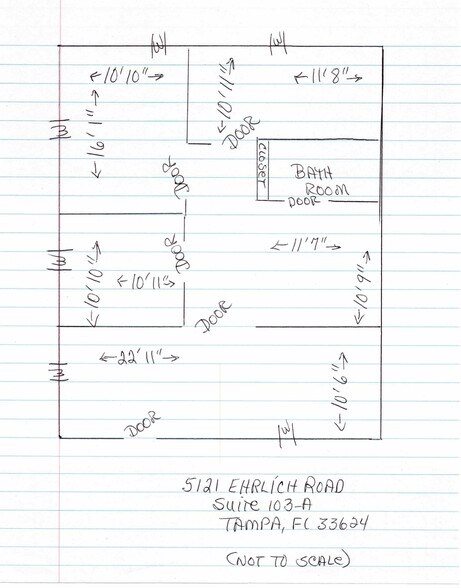 W
W
10'10"
10'11"
11'8"
W
16'1"
DOOR
CLOSET
BATH
ROOM
DOOR
DOOR
DOOR
11'7"
W
10'10"
10'11"
10'9"
DOOR
22'11"
W
10'6"
DOOR
W
5121 EHRLICH ROAD
SUITE 103-A
TAMPA, FL 33624
(NOT TO SCALE)